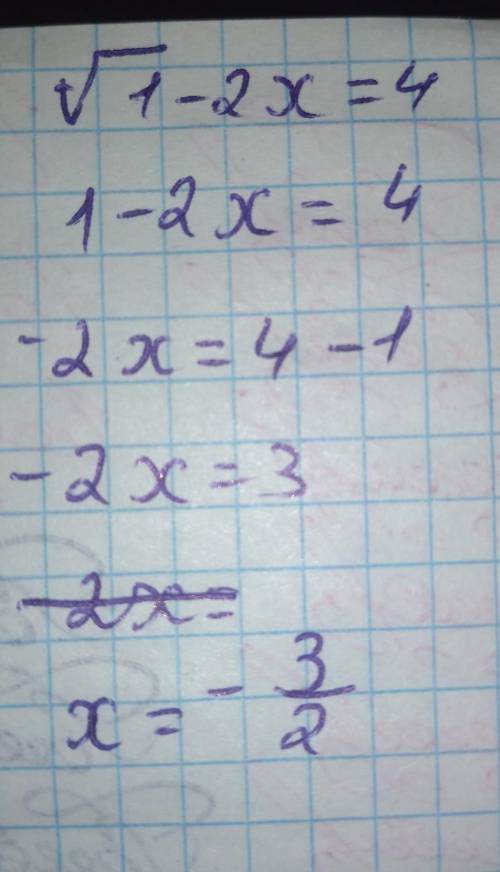 √1 - 2x = 4
1 - 2x = 4
-2x = 4 - 1
-2x = 3
2x =
x = - 3/2